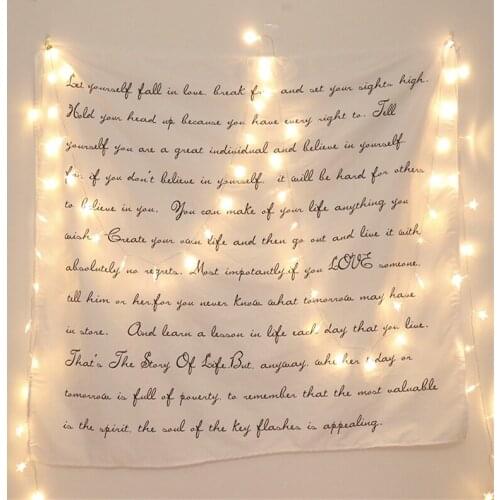 Let yourself fall in love. break f and set your sights high.
Hold your head up because you have every right to. Tell
yourself you are a great individual and believe in yourself
for if you don't believe in yourself, it will be hard for others
to believe in you. You can make of your life anything you
wish. Create your own life and then go out and live it with
absolutely no regrets. Most impotantly.if you LOVE someone,
tell him or her.for you never know what tomorrow may have
in store. And learn a lesson in life each day that you live.
That's The Story Of Life.But, anyway, whether day or
tomorrow is full of poverty, to remember that the most valuable
is the spirit, the soul of the key flashes is appealing.